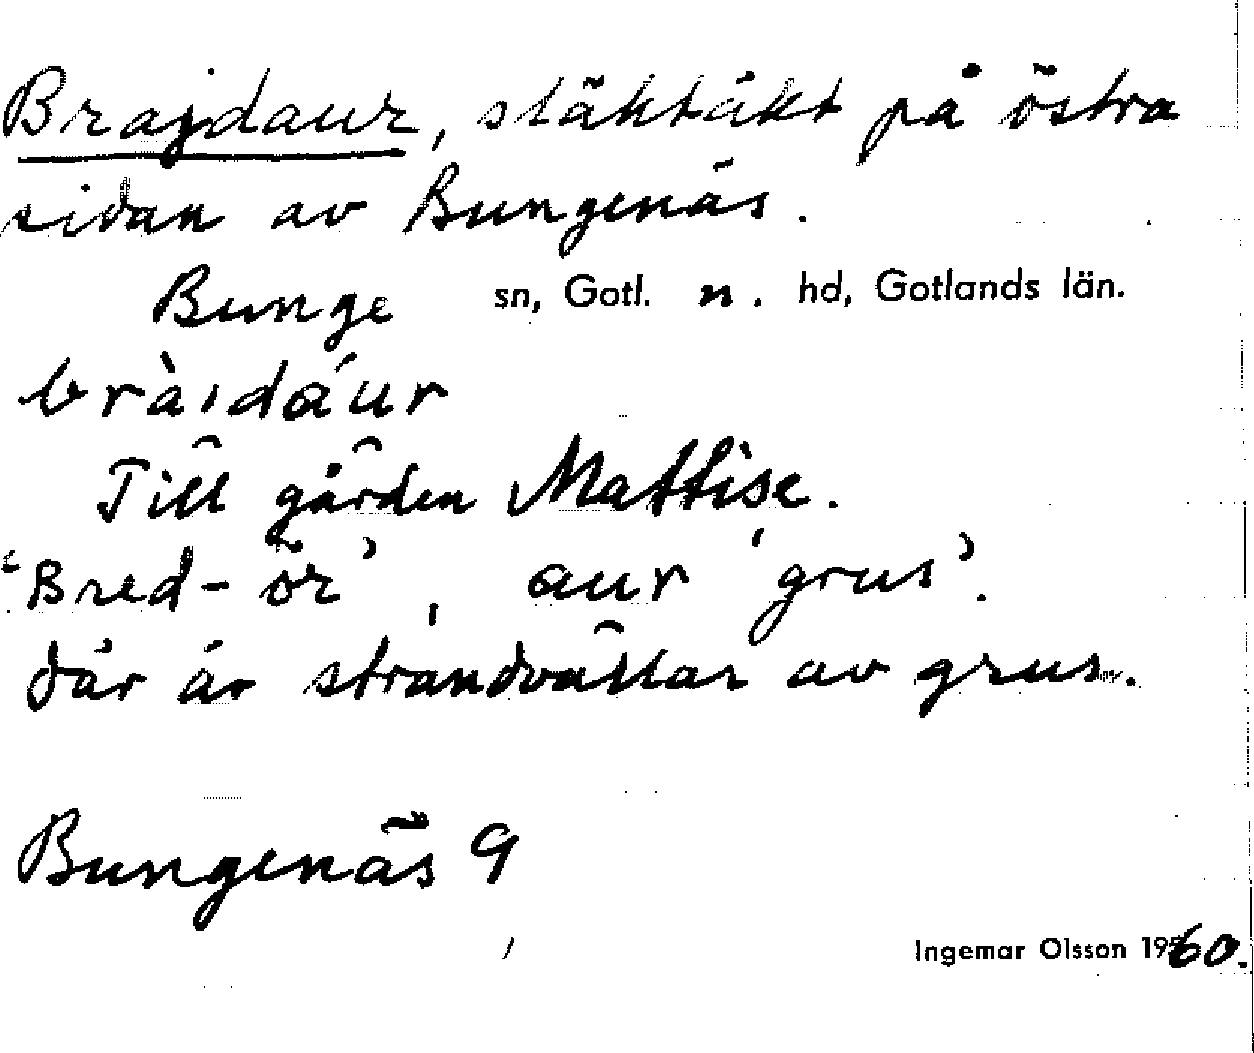 Brajdaur, släktäkt på östra
sidan av Bungenäs.
Bunge sn, Gotl. n. hd, Gotlands län.
bràidáur
Till gården Mattise.
'Bred-ör', aur 'grus'.
där är strandvallar av grus.
Bungenäs 9
Ingemar Olsson 1960.